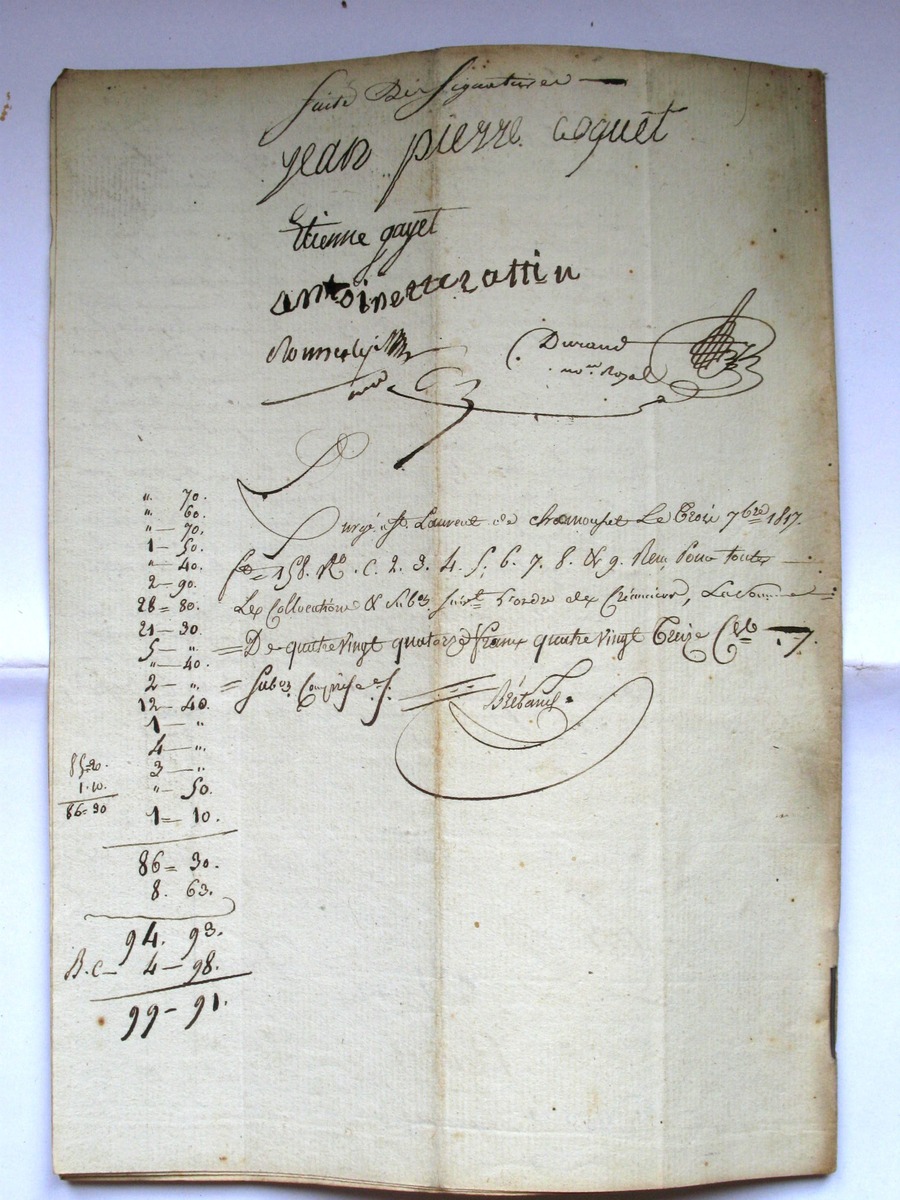 Suite Des Signatures
jean pierre coquet
Etienne gayet
antoine
Durand
no.re Royal
,, 70.
,, 60.
,, — 70.
1 — 50.
,, — 40.
2 — 90.
28 = 80.
21 — 30.
5 — ,,
,, — 40.
2 — ,,
12 — 40.
1 — ,,
4 — ,,
3 — ,,
,, — 50.
1 — 10.
85=20.
1.10.
86=30
86 = 30.
8. 63.
94. 93.
B.c— 4 — 98.
99 — 91.
St. Laurent de chamousset Le Trois 7bre 1817.
f° 158. R° . C. 2. 3. 4. 5. 6. 7. 8. & 9. Reçu Pour toutes
Les Collocations & Subon l'ordre des Créanciers, La Somme =
= De quatre vingt quatorze francs quatre vingt Treize Ces
= Subon Comprise /.